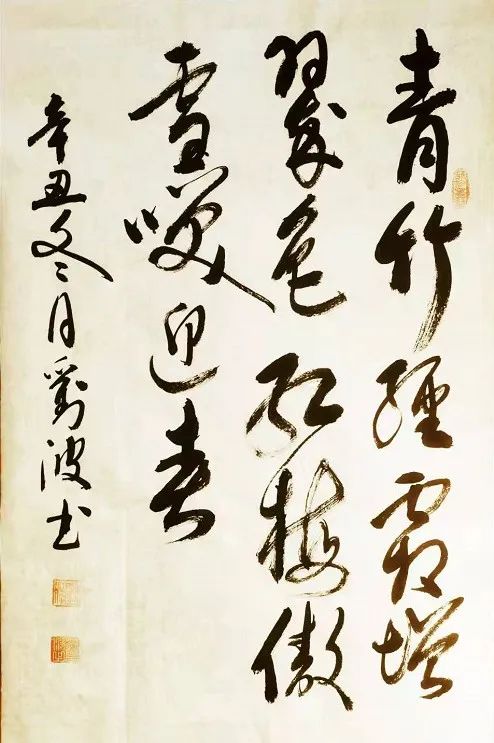 青竹經霜增
翠色紅梅傲
雪笑迎春
辛丑冬月劉波书